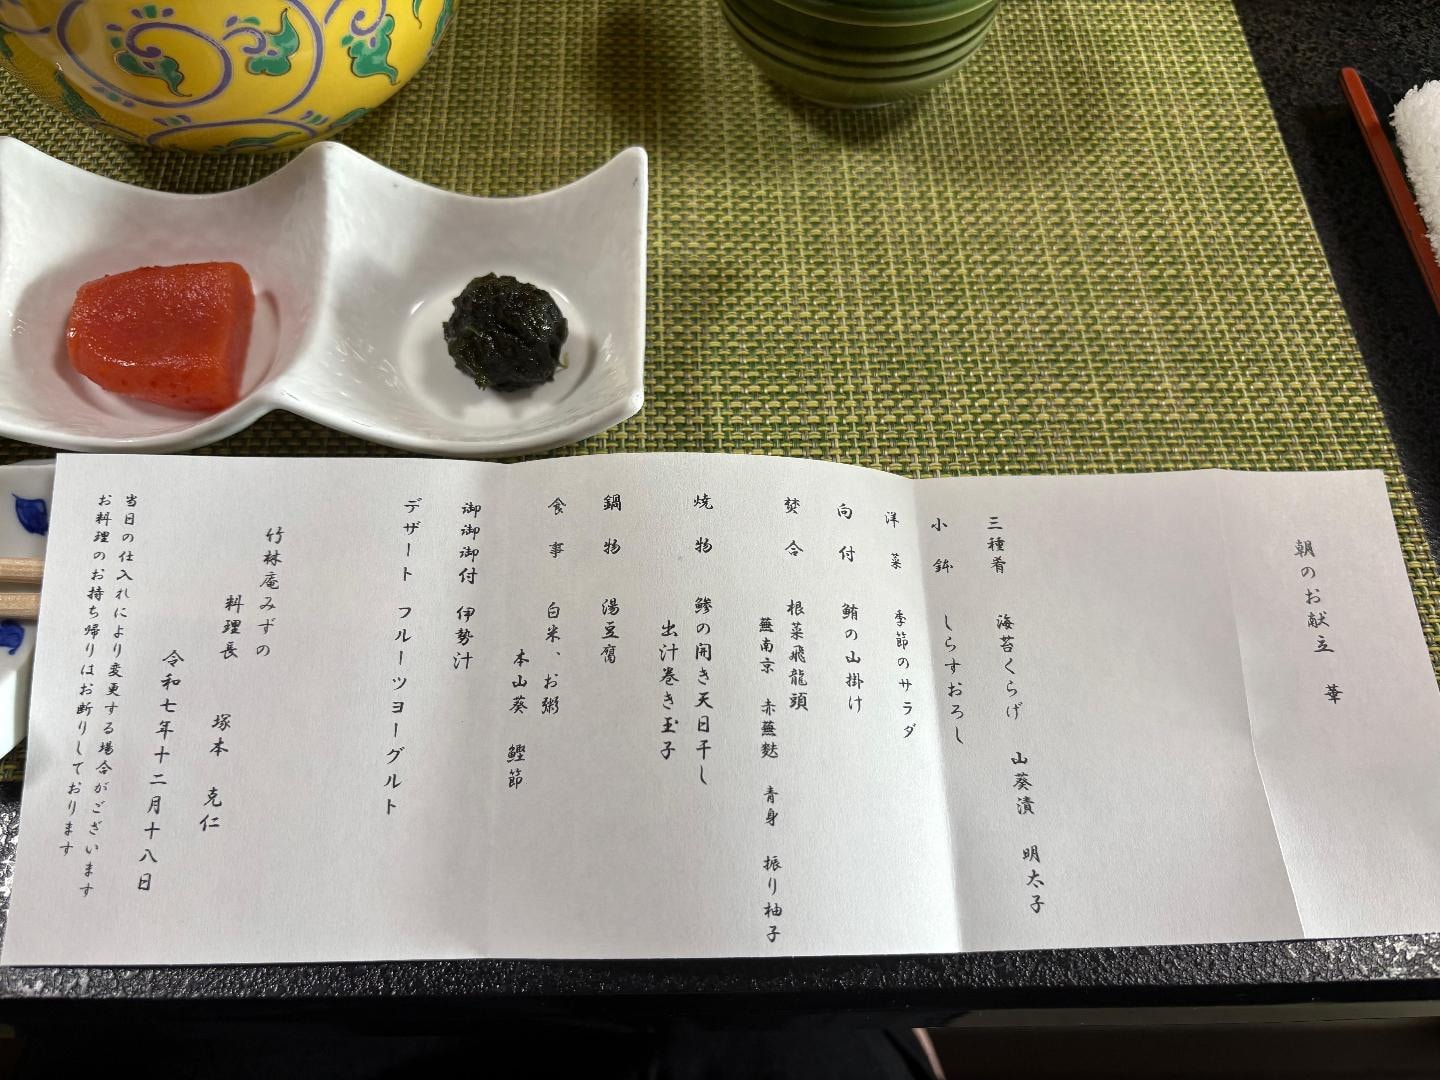 朝のお献立　華
三種肴　海苔くらげ　山葵漬　明太子
小鉢　しらすおろし
洋菜　季節のサラダ
向付　鮪の山掛け
焚合　根菜飛龍頭
蕪南京　赤蕪麩　青身　振り柚子
焼物　鯵の開き天日干し
出汁巻き玉子
鍋物　湯豆腐
食事　白米、お粥
本山葵　鰹節
御御御付　伊勢汁
デザート　フルーツヨーグルト
竹林庵みずの
料理長　塚本　克仁
令和七年十二月十八日
当日の仕入れにより変更する場合がございます
お料理のお持ち帰りはお断りしております